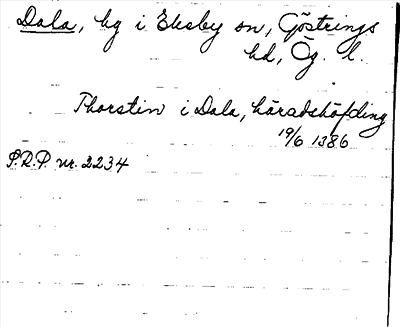 Dala, by i Ekeby sn, Göstrings
hd, Ög. l.
Thorstin i Dala, häradshöfding
19/6 1386
S.R.P. nr. 2234